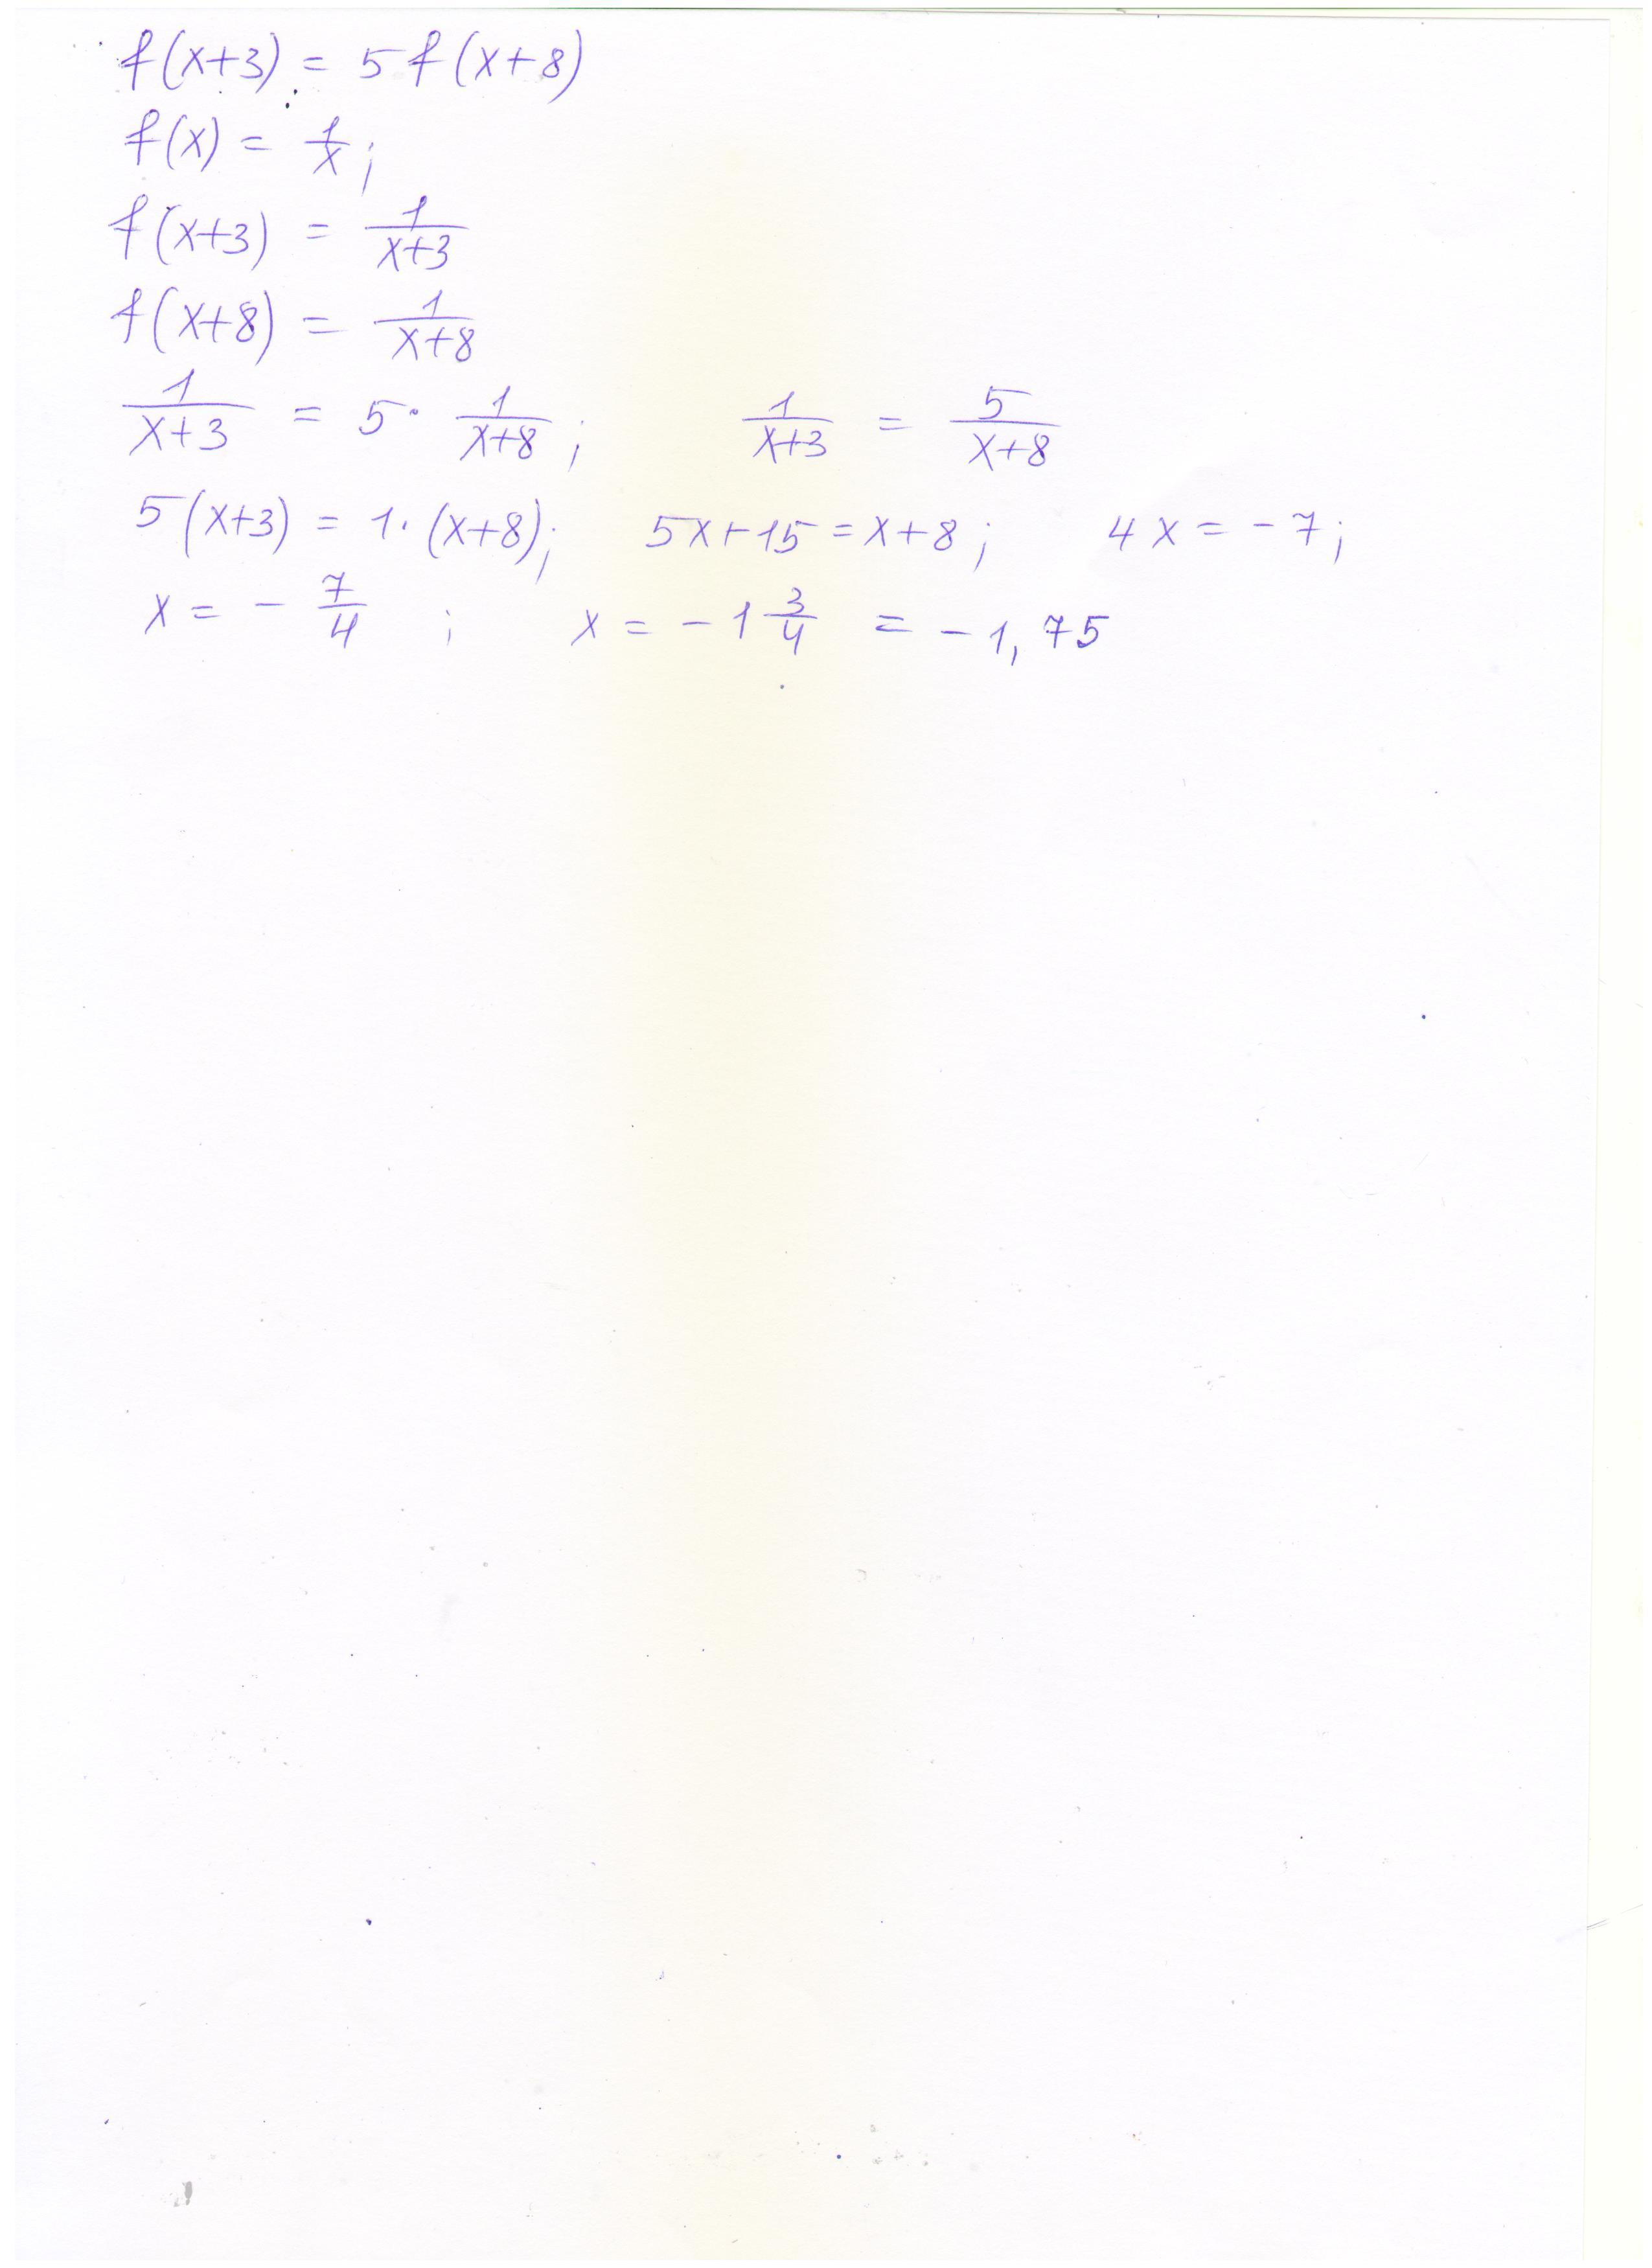 f(x+3) = 5f(x+8)
f(x) = 1/x;
f(x+3) = 1/(x+3)
f(x+8) = 1/(x+8)
1/(x+3) = 5 · 1/(x+8); 1/(x+3) = 5/(x+8)
5(x+3) = 1·(x+8); 5x+15=x+8; 4x = -7;
x = - 7/4 ; x = - 1 3/4 = -1,75